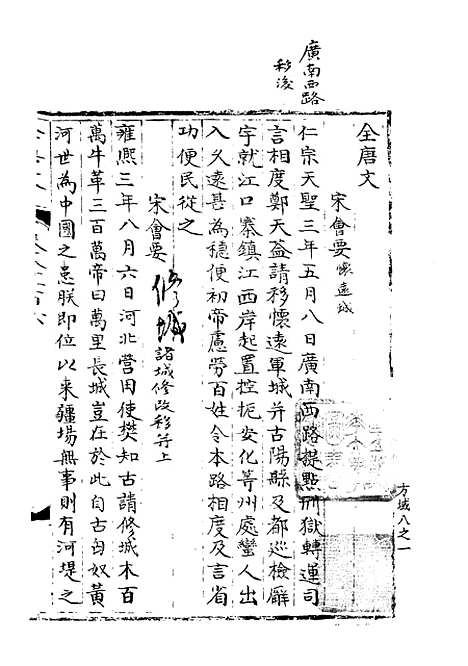 廣南西路
移後
全唐文
宋會要懷遠城
仁宗天聖三年五月八日廣南西路提點刑獄轉運司
言相度鄭天益請移懷遠軍城并古陽縣及都巡檢廨
宇就江口寨鎮江西岸起置控扼安化等州處蠻人出
入久遠甚為穩便初帝慮勞百姓令本路相度及言省
功便民從之
宋會要
修城諸城修改移并上
雍熙三年八月六日河北營田使樊知古請修城木百
萬牛革三百萬帝曰萬里長城豈在於此自古匈奴黃
河世為中國之患朕即位以来疆場無事則有河堤之
方域八之一